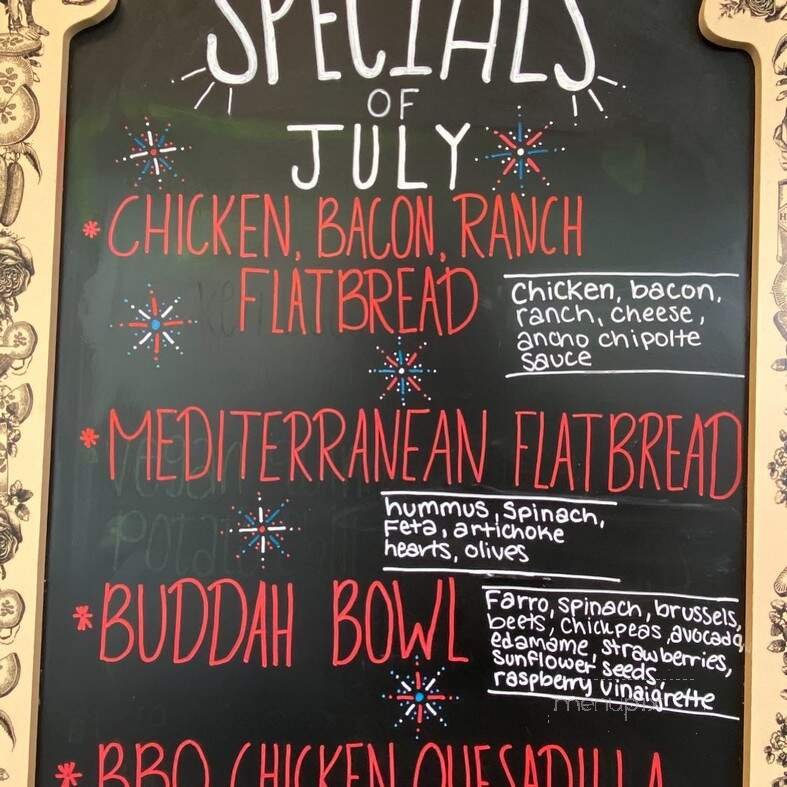 SPECIALS
OF
JULY
* CHICKEN, BACON, RANCH
FLATBREAD
Chicken, bacon,
ranch, cheese,
ancho chipolte
sauce
* MEDITERRANEAN FLATBREAD
hummus, spinach,
Feta, artichoke
hearts, olives
* BUDDAH BOWL
Farro, spinach, brussels,
beets, chickpeas, avocado,
edamame, strawberries,
sunflower seeds,
raspberry vinaigrette
menupix
* BBQ CHICKEN QUESADILLA